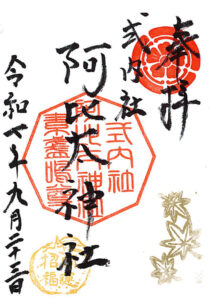 奉拝
式内社
阿比太神社
令和七年九月二十三日
式内社
阿比太神社